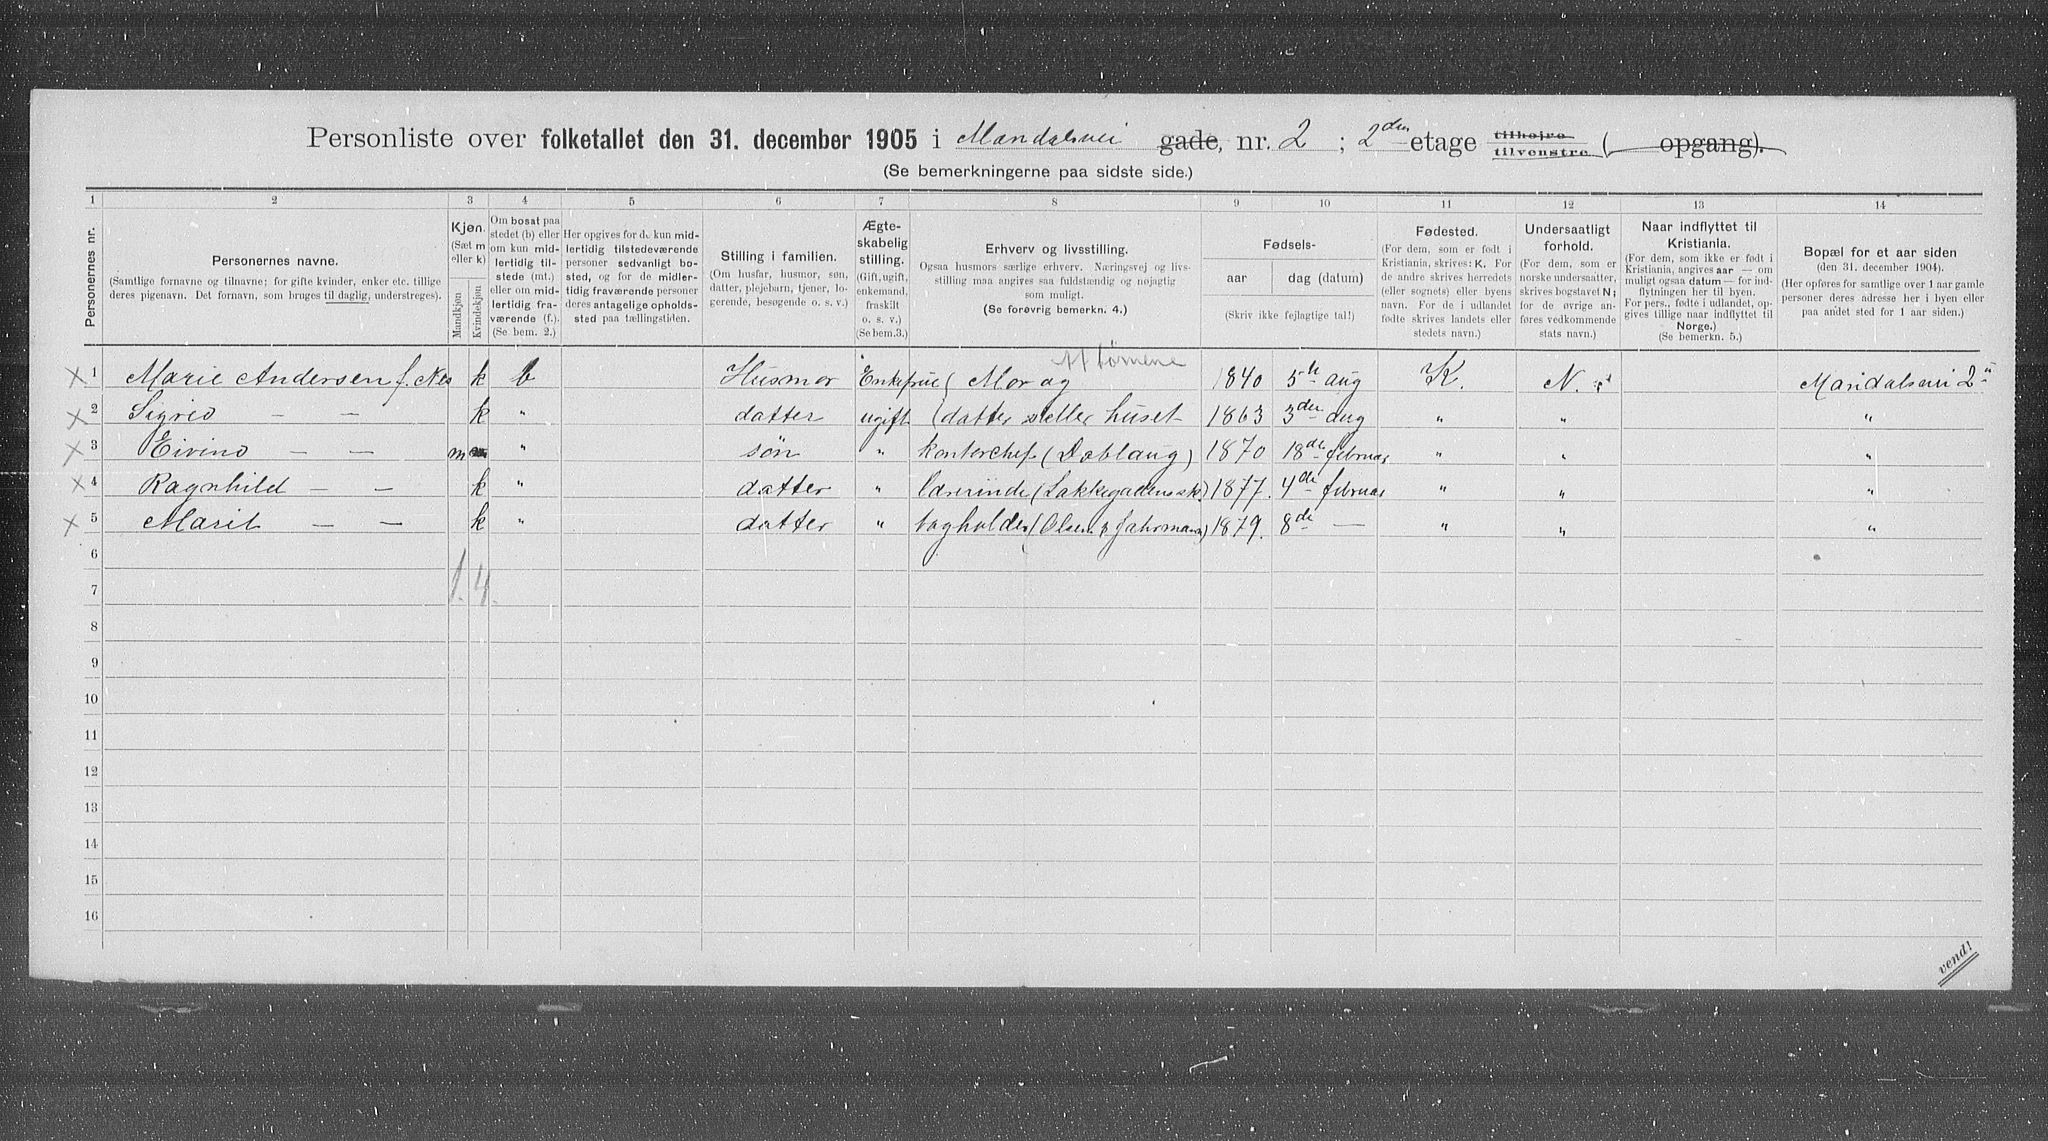 Personliste over folketallet den 31. december 1905 i Mandalsvei gade, nr. 2 ; 2den etage tilhøjre tilvenstre ( opgang).
(Se bemerkningerne paa sidste side.)
1 2 3 4 5 6 7 8 9 10 11 12 13 14
Personernes nr.
Personernes navne.
(Samtlige fornavne og tilnavne; for gifte kvinder, enker etc. tillige
deres pigenavn. Det fornavn, som bruges til daglig, understreges).
Kjøn.
(Sæt m
eller k)
Mandkjøn
Kvindekjøn
Om bosat paa
stedet (b) eller
om kun mid-
lertidig til-
stede (mt.)
eller om mid-
lertidig fra-
værende (f.).
(Se bem. 2.)
Her opgives for de kun mid-
lertidig tilstedeværende
personer sedvanligt bo-
sted, og for de midler-
tidig fraværende personer
deres antagelige opholds-
sted paa tællingstiden.
Stilling i familien.
(Om husfar, husmor, søn,
datter, plejebarn, tjener, lo-
gerende, besøgende o. s. v.)
Ægte-
skabelig
stilling.
(Gift, ugift,
enkemand,
fraskilt
o. s. v.)
(Se bem.3.)
Erhverv og livsstilling.
Ogsaa husmors særlige erhverv. Næringsvej og livs-
stilling maa angives saa fuldstændig og nøjagtig
som muligt.
(Se forøvrig bemerkn. 4.)
Fødsels-
aar dag (datum)
(Skriv ikke fejlagtige tal!)
Fødested.
(For dem, som er født i
Kristiania, skrives: K. For
de andre skrives herredets
(eller sognets) eller byens
navn. For de i udlandet
fødte skrives landets eller
stedets navn.)
Undersaatligt
forhold.
(For dem, som er
norske undersaatter,
skrives bogstavet N;
for de øvrige an-
føres vedkommende
stats navn.)
Naar indflyttet til
Kristiania.
(For dem, som ikke er født i
Kristiania, angives aar — om
muligt ogsaa datum — for ind-
flytningen her til byen.
For pers., fødte i udlandet, op-
gives tillige naar indflyttet til
Norge.)
(Se bemerkn. 5.)
Bopæl for et aar siden
(den 31. december 1904).
(Her opføres for samtlige over 1 aar gamle
personer deres adresse her i byen eller
paa andet sted for 1 aar siden.)
x 1 Marie Andersen f. Nes k b Husmor Enkefrue ( Mor og 1840 5te aug K. N. Mandalsvei 2
x 2 Sigrid — — k " datter ugift (datter steller huset 1863 3den aug " " "
x 3 Eivind — — m " søn " kontorchef (Dobloug) 1870 18de februar " " "
x 4 Ragnhild — — k " datter " lærerinde (Lakkegadens sk.) 1877. 4de februar " " "
x 5 Marit — — k " datter " bogholder (Olsen & Jahrmann) 1879. 8de — " " "
6
1. 4.
7
8
9
10
11
12
13
14
15
16
vend!